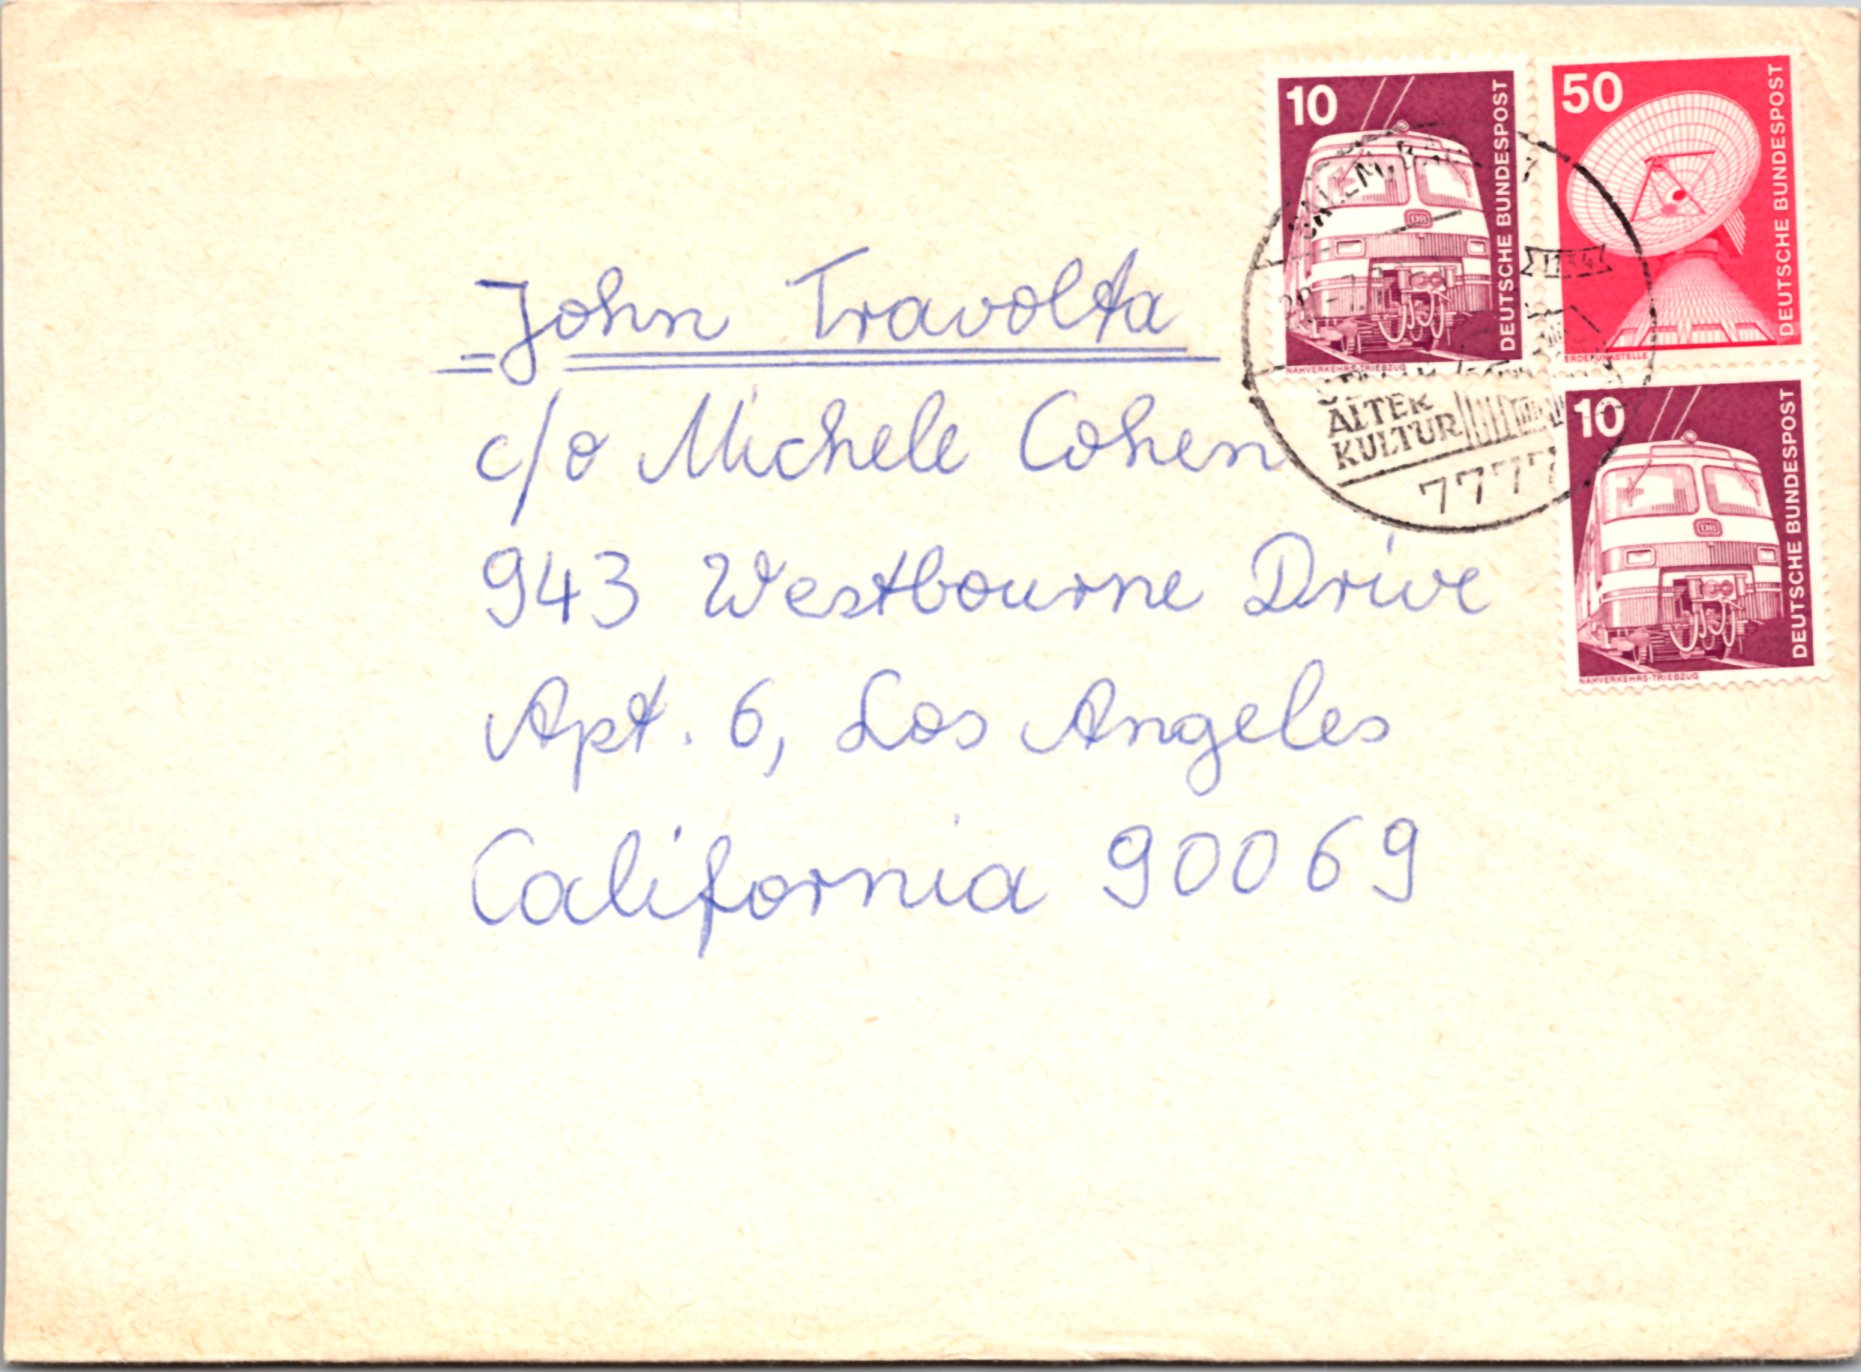 10
DEUTSCHE BUNDESPOST
DB
NAHVERKEHRS-TRIEBZUG
50
DEUTSCHE BUNDESPOST
ERDEFUNKSTELLE
10
DEUTSCHE BUNDESPOST
DB
NAHVERKEHRS-TRIEBZUG
SALEM, 
1134
ALTER
KULTUR
7777
John Travolta
c/o Michele Cohen
943 Westbourne Drive
Apt. 6, Los Angeles
California 90069